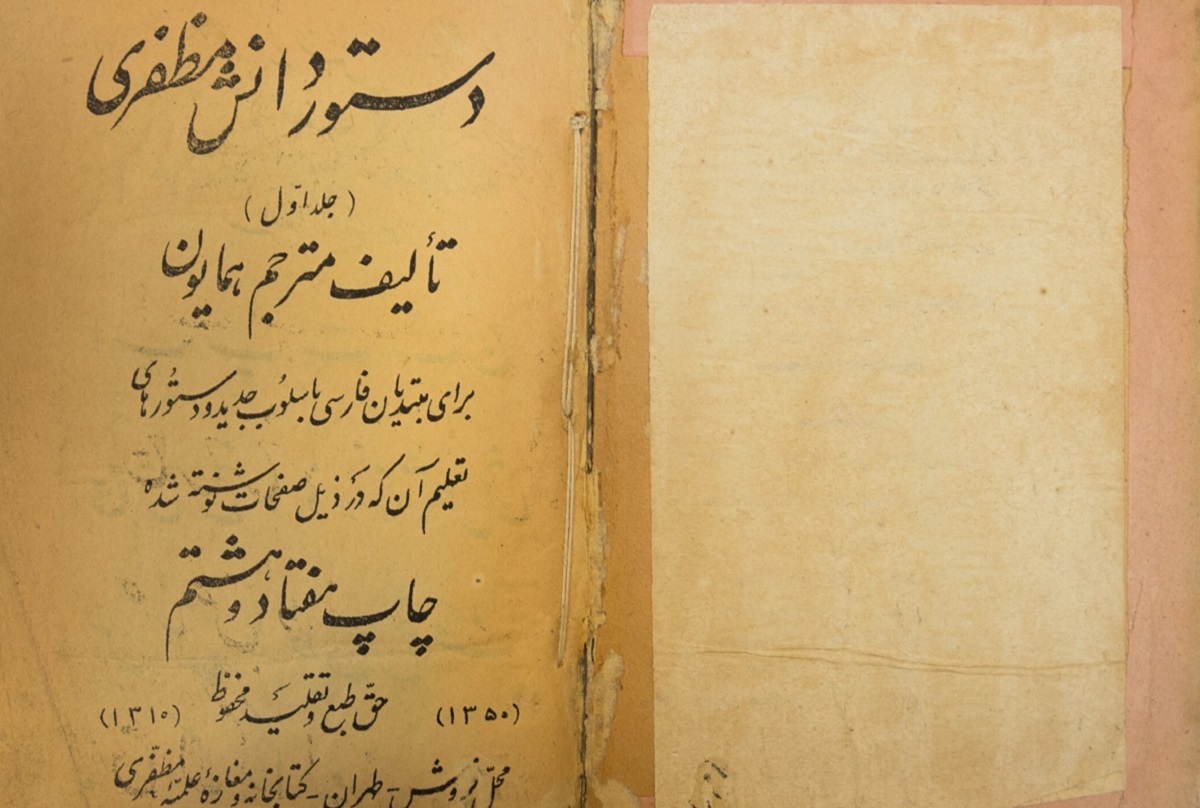 دستور دانش مظفری
(جلد اوّل)
تألیف مترجم همایون
برای مبتدیان فارسی باسلوب جدید و دستورهای
تعلیم آن که در ذیل صفحات نوشته شده
چاپ هفتاد و هشتم
(۱۳۵۰) حقّ طبع و تقلید محفوظ (۱۳۱۰)
محلّ فروش - طهران - کتابخانه و مغازهٔ علمیّه مظفّری